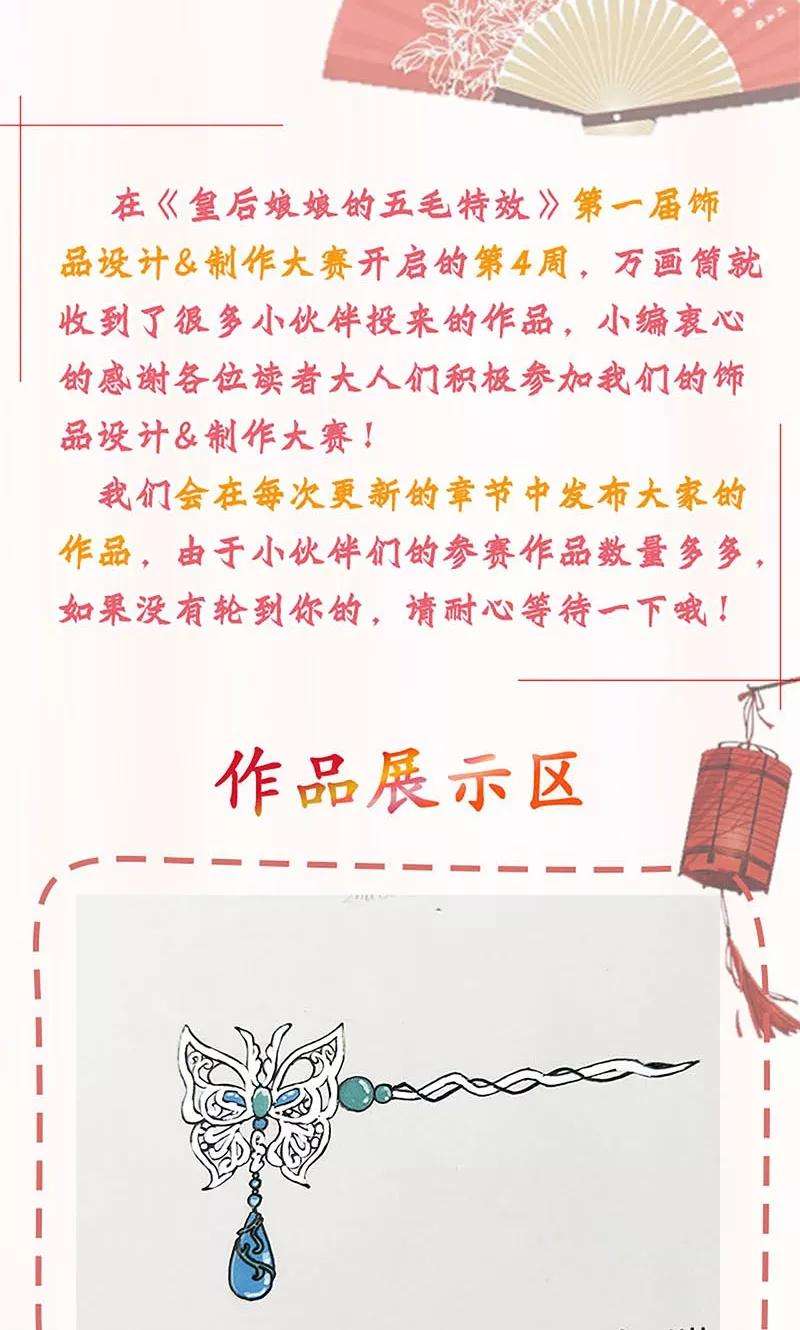 在《皇后娘娘的五毛特效》第一届饰
品设计&制作大赛开启的第4周，万画筒就
收到了很多小伙伴投来的作品，小编衷心
的感谢各位读者大人们积极参加我们的饰
品设计&制作大赛！
我们会在每次更新的章节中发布大家的
作品，由于小伙伴们的参赛作品数量多多，
如果没有轮到你的，请耐心等待一下哦！
作品展示区